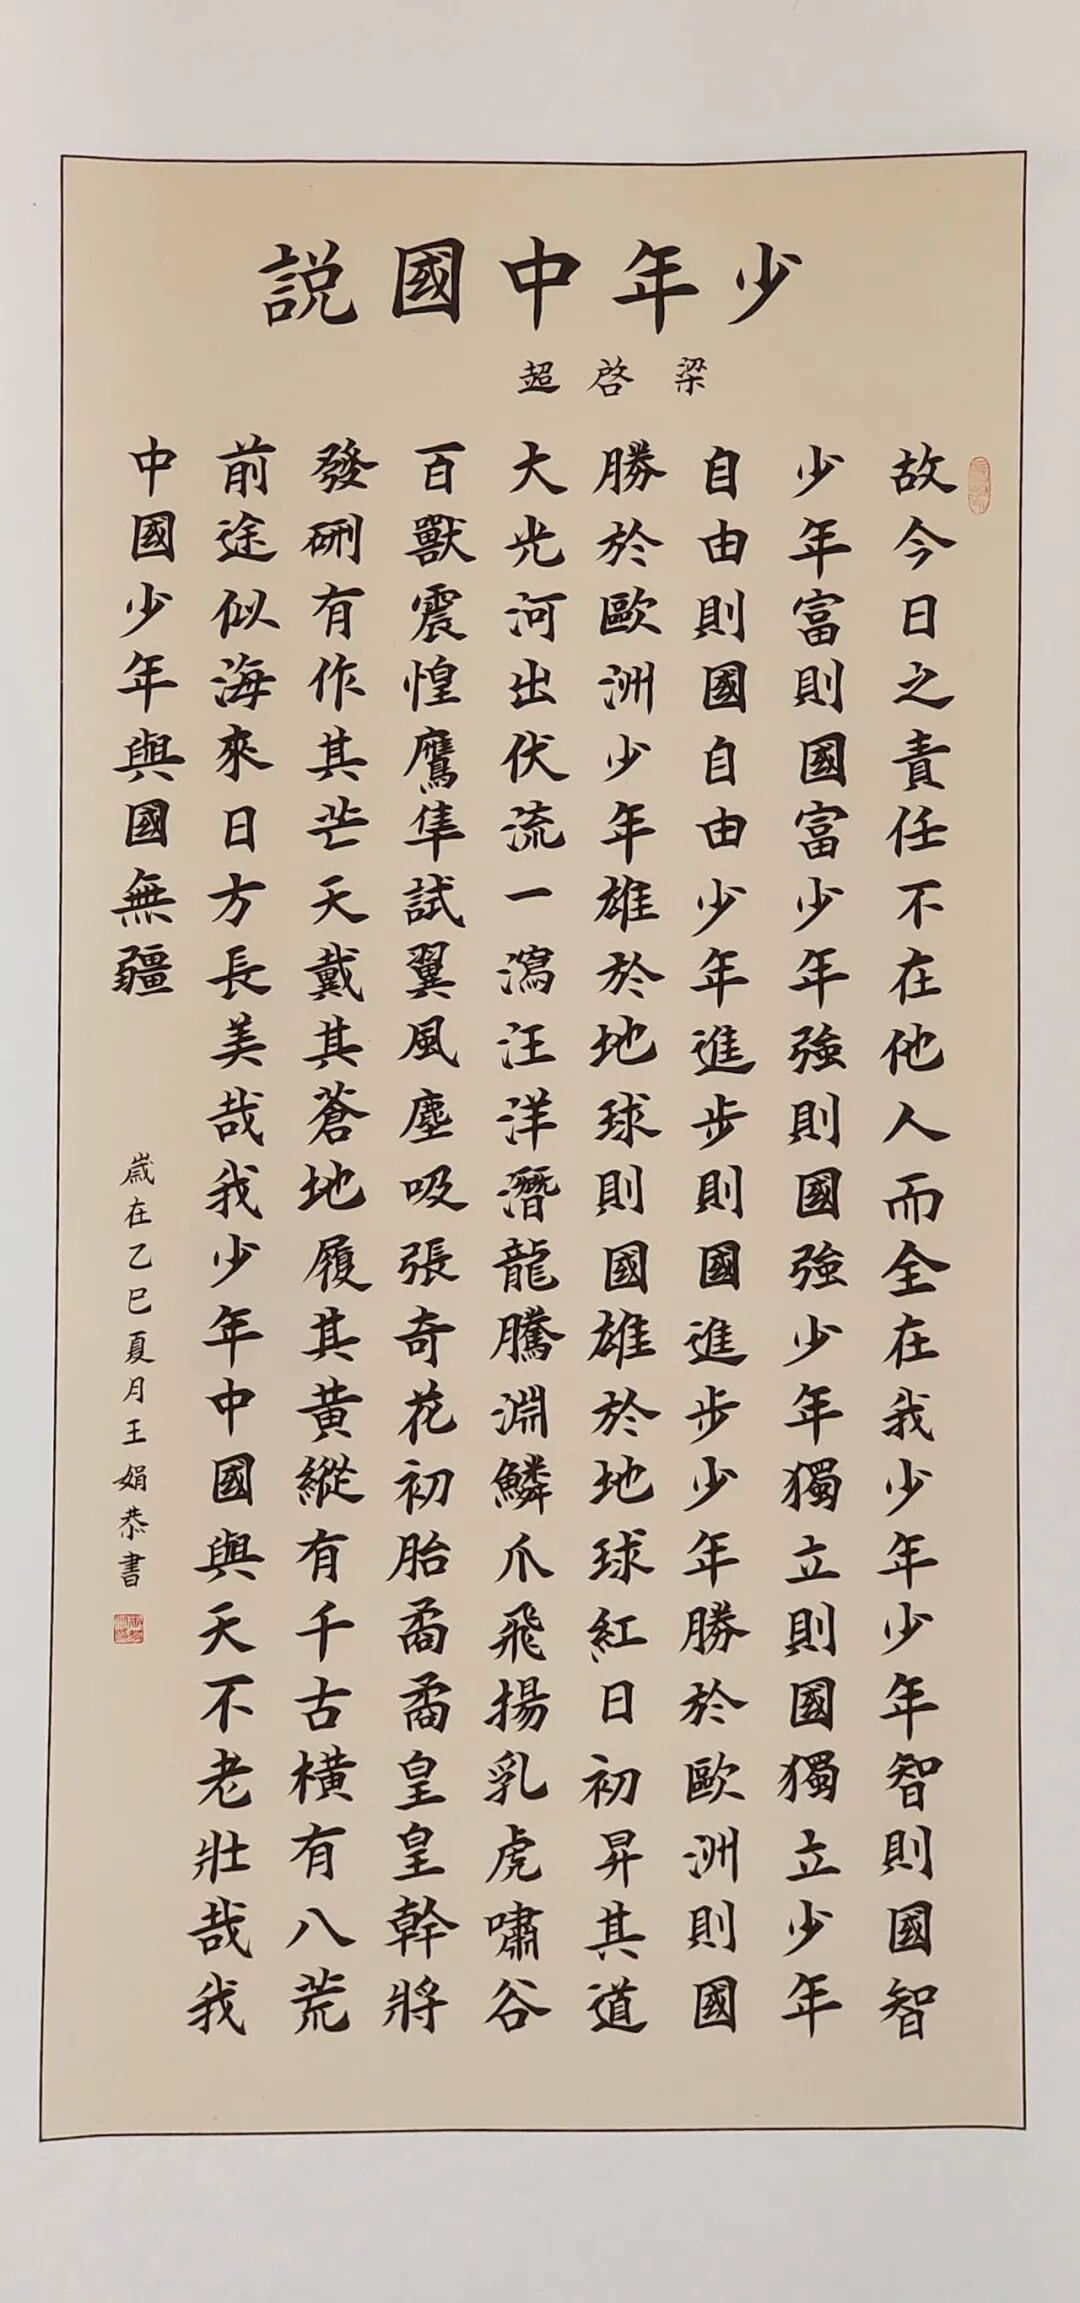 少年中國説
梁啓超
故今日之責任不在他人而全在我少年少年智則國智
少年富則國富少年強則國強少年獨立則國獨立少年
自由則國自由少年進步則國進步少年勝於歐洲則國
勝於歐洲少年雄於地球則國雄於地球紅日初昇其道
大光河出伏流一瀉汪洋潛龍騰淵鱗爪飛揚乳虎嘯谷
百獸震惶鷹隼試翼風塵吸張奇花初胎矞矞皇皇幹將
發硎有作其芒天戴其蒼地履其黃縱有千古橫有八荒
前途似海來日方長美哉我少年中國與天不老壯哉我
中國少年與國無疆
歲在乙巳夏月王娟恭書